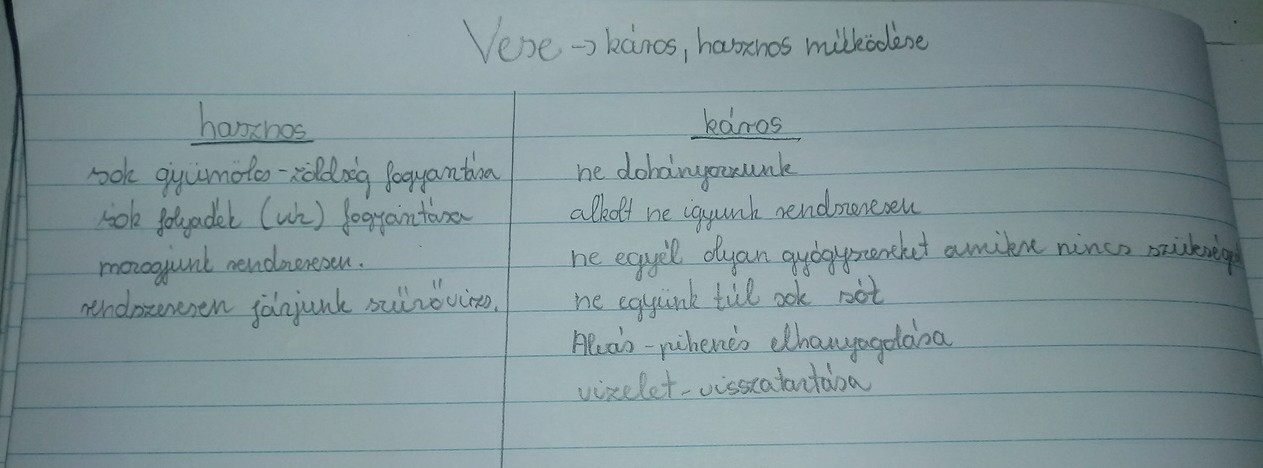 Vese → káros, hasznos működése
hasznos
sok gyümölcs-zöldség fogyasztása
sok folyadék (víz) fogyasztása
mozogjunk rendszeresen.
rendszeresen járjunk szűrővizs.
káros
ne dohányozzunk
alkolt ne igyunk rendszeresen
ne egyél olyan gyógyszereket amikre nincs szükséged
ne együnk túl sok sót
Alvás-pihenés elhanyagolása
vizelet-visszatartása